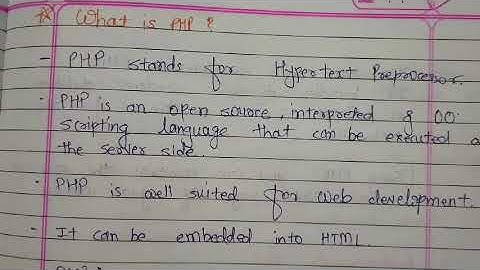 What is PHP ?
- PHP stands for Hypertext Preprocessor.
- PHP is an open source, interpreted & OO
scripting language that can be executed
the server side.
- PHP is well suited for web development.
- It can be embedded into HTML.